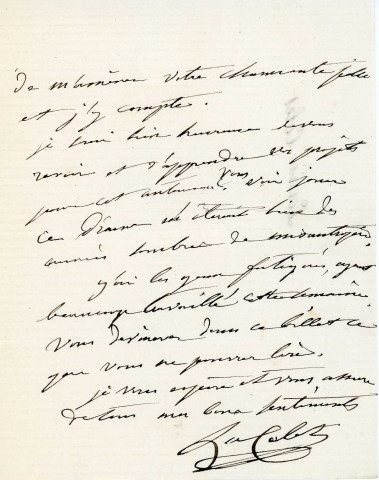 de m'amener votre charmante fille
et j'y compte.
je suis bien heureuse de vous
revoir et d'apprendre vos projets
pour cet automne. Vous voir jouer
ce Drame me ôterait bien des
années
j'ai les yeux fatigués, ayant
beaucoup travaillé cette semaine.
Vous devinerez dans ce billet ce
que vous ne pourrez lire.
je vous espère et vous assure
de tous mes bons sentiments